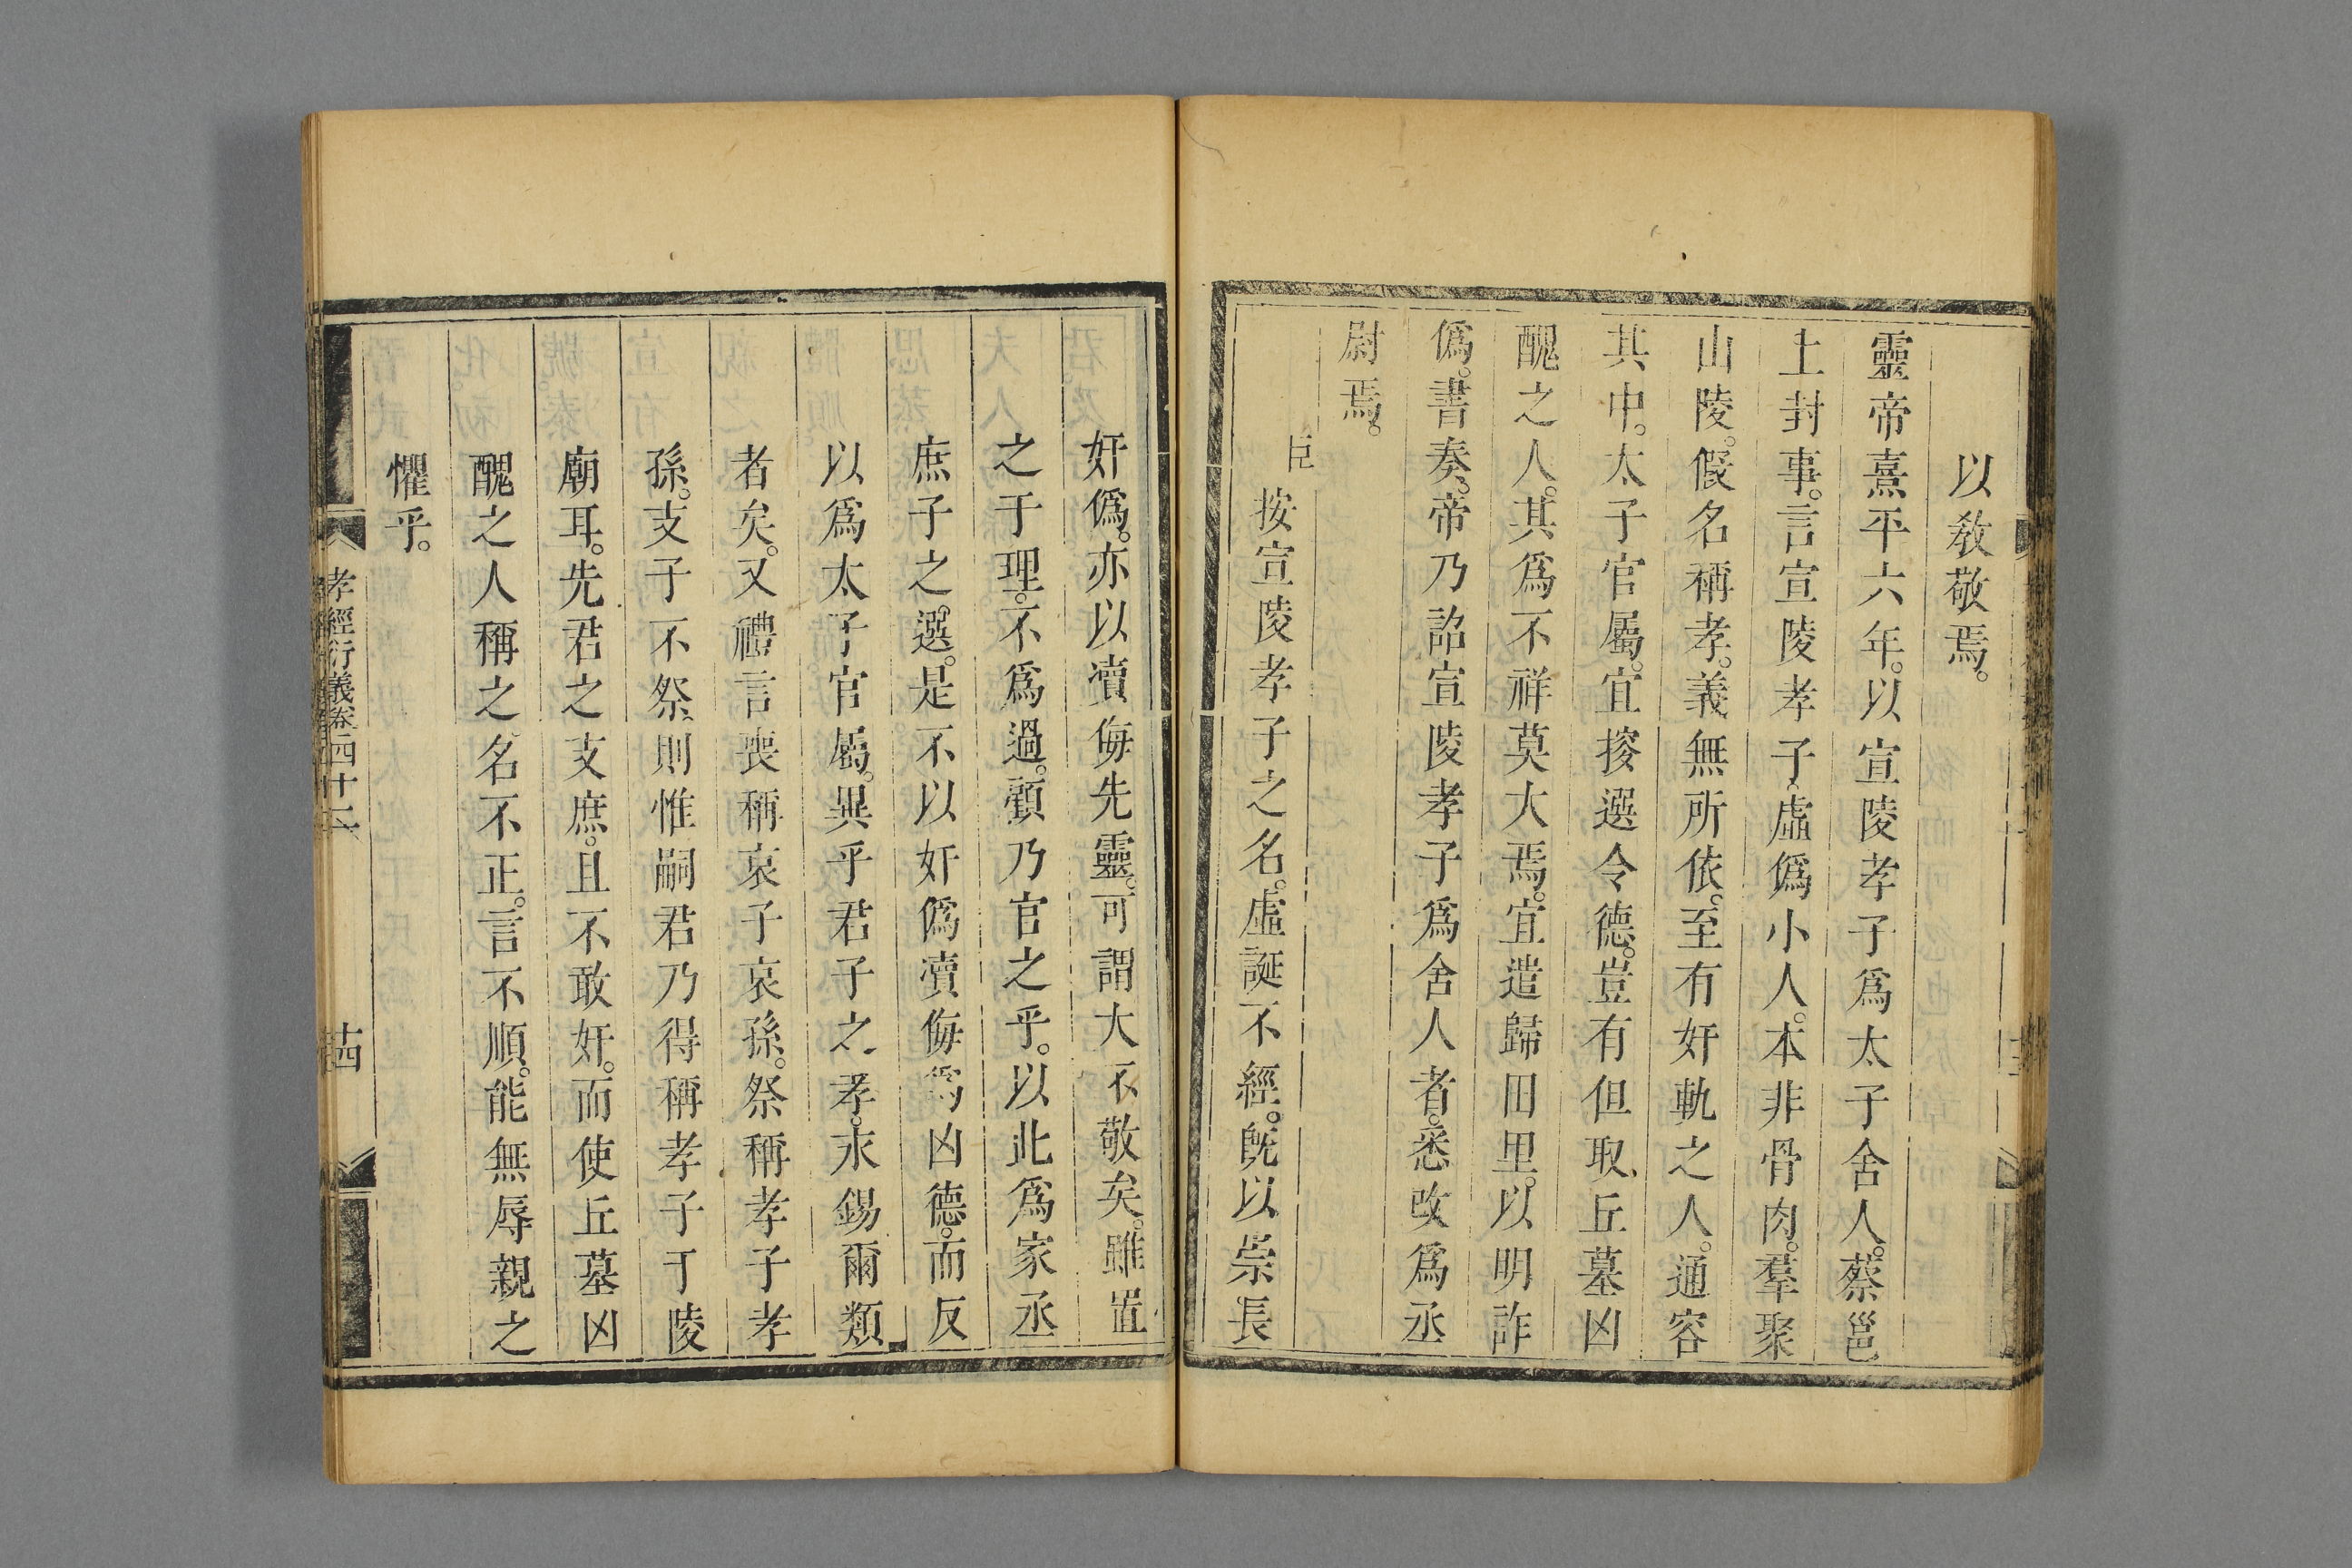 以敎敬焉。
靈帝熹平六年。以宣陵孝子爲太子舍人。蔡邕
上封事。言宣陵孝子。虛僞小人。本非骨肉。羣聚
山陵。假名稱孝。義無所依。至有奸軌之人。通容
其中。太子官屬。宜搜選令德。豈有但取丘墓凶
醜之人。其爲不祥莫大焉。宜遣歸田里。以明詐
僞。書奏。帝乃詔宣陵孝子爲舍人者。悉改爲丞
尉焉。
臣按宣陵孝子之名。虛誕不經。旣以崇長
奸僞。亦以瀆侮先靈。可謂大不敬矣。雖置
之于理。不爲過。顧乃官之乎。以此爲家丞
庶子之選。是不以奸僞瀆侮爲凶德。而反
以爲太子官屬。異乎君子之孝。永錫爾類
者矣。又禮言喪稱哀子哀孫。祭稱孝子孝
孫。支子不祭。則惟嗣君乃得稱孝子于陵
廟耳。先君之支庶。且不敢奸。而使丘墓凶
醜之人稱之。名不正。言不順。能無辱親之
懼乎。
孝經衍義卷四十六
十四